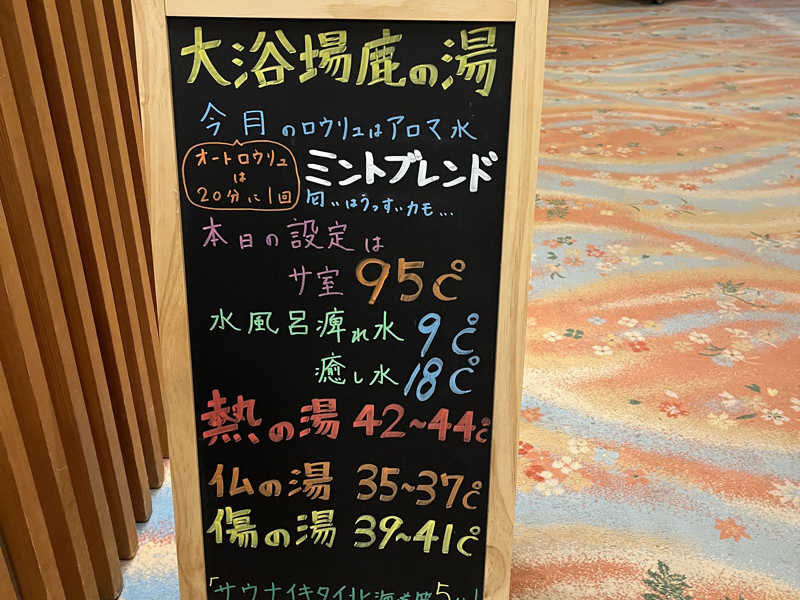 大浴場鹿の湯
今月のロウリュはアロマ水
オートロウリュ
は
20分に1回
ミントブレンド
匂いはうっすぃカモ...
本日の設定は
サ室 95℃
水風呂痺れ水 9℃
癒し水 18℃
熱の湯 42~44℃
仏の湯 35~37℃
傷の湯 39~41℃
「サウナイキタイ北海道